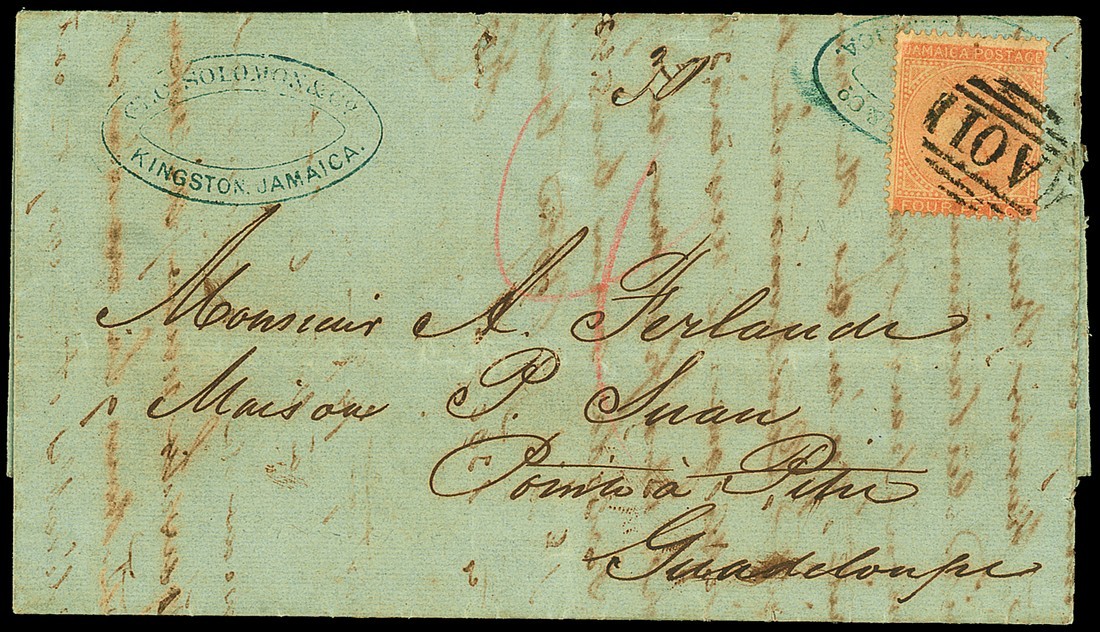 GEO. SOLOMON & CO.
KINGSTON, JAMAICA.
& CO
JAMAICA POSTAGE
A01
FOUR PENCE
Monsieur A. Ferlande
Maison P. Suan
Pointe à Pitre
Guadeloupe